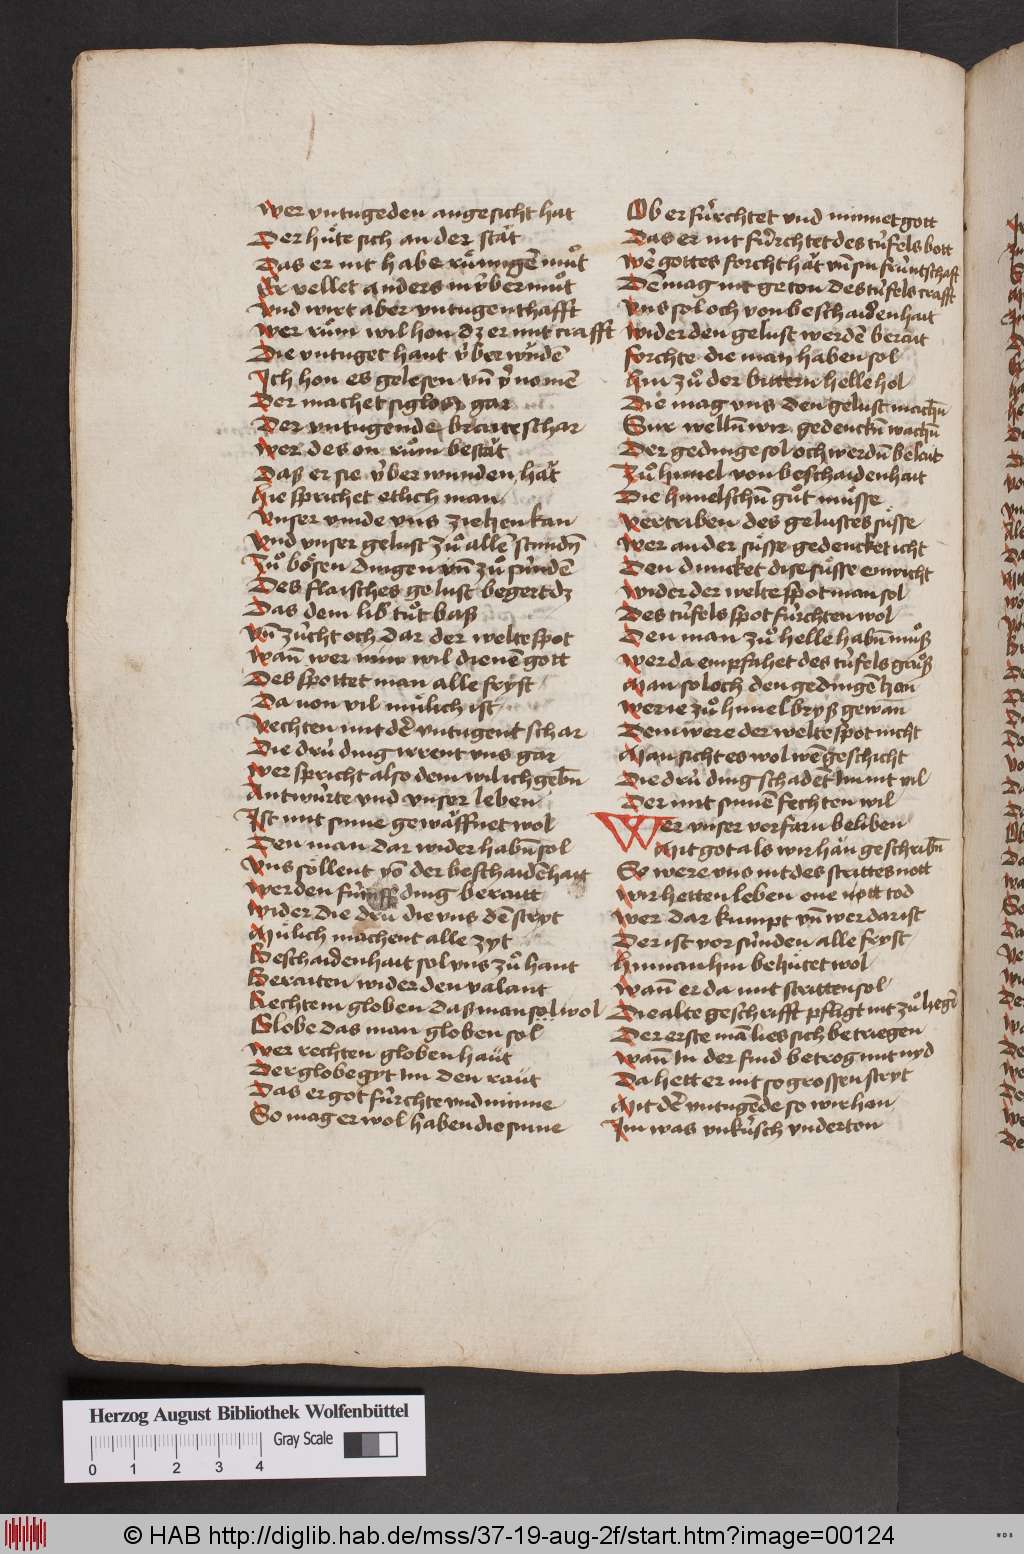 Wer vntugeden angesicht hat
Der hu͛te sich an der stät
Das er nit habe rümigē muͦt
Er vellet anders in v̓bermuͦt
Vnd wirt aber vntugenthafft
Wer ruͦm wil hon dz er mit crafft
Die vntuget haut v̓berwu̓dē
Ich hon es gelesen vn̄ v̓nomē
Der machet siglosz gar
Der vntugende braite schar
Wer des on ruͦm bestät
Dasz er sie v̓berwunden hät
Hie sprichet etlich man
Vnser vinde vns ziehen kan
Vnd vnser gelust zuͦ allē stundn̄
Zuͦ bösen dingen vn̄ zuͦ su̓ndē
Des flaisches gelust begert dz
Das dem lib tuͦt basz
Vn̄ zu̓cht och dar der welte spot
Wan̄ wer nun wil dienē gott
Des spottet man alle fryst
Da von vil mülich ist
Vechten mit dē vntugent schar
Die dru̓ ding irrent vns gar
Wer spricht also dem wil ich gebn̄
Antwu̓rte vnd vnser leben
Ist mit sinne gewäffnet wol
Den man dar wider habn̄ sol
Vns söllent vō der beschaidēhait
Werden fu̓nff ding beraitt
Wider die dru̓ die vns dē stryt
Mülich machent alle zyt
Beschaidenhait sol vns zuͦ hant
Beraiten wider den valant
Rechtem globen das man sol wol
Globe das man globen sol
Wer rechten globen haüt
Der globe gyt im den raüt
Das er got fu̓rchte vnd minne
So mag er wol haben die sinne
Ob er fu̓rchtet vnd minnet gott
Das er nit fu̓rchtet des tu̓fels bott
Wē gottes forcht hät vn̄ sin fru̓ntschaft
Dē mag nit geton des tu̓fels crafft
Vns sol och von beschaidenhait
Wider den gelust werdē berait
Forchte die man haben sol
Hin zuͦ der bittern helle hol
Die mag vns den gelust machn̄
Sur welln̄ wir gedenckn̄ wachn̄
Der gedinge sol och werdn̄ belait
Zuͦ himel von beschaidenhait
Die himelschn̄ guͦt müsse
Vertriben des gelustes süsse
Wer an der süsse gedencket icht
Den duncket dise süsse enwicht
Wider der welte spot man sol
Des tu̓fels spot fu̓rchten wol
Den man zuͦ helle habn̄ muͦsz
Wer da empfahet des tu̓fels gruͦsz
Man sol och den gedingē hon
Wer ie zuͦ himel brysz gewan
Dem were der welte spot nicht
Man sicht es wol wē geschicht
Die dru̓ ding schadet im nit vil
Der mit sinnē fechten wil
Wer vnser vorfarn beliben
Mit got als wir hän geschribn̄
So were vns nit des strittes nott
Wir hetten leben one nott tod
Wer dar kumpt vn̄ wer dar ist
Der ist vor su̓nden alle fryst
Hinnan hin behu̓tet wol
Wan̄ er da nit stritten sol
Die alte geschrifft pfligt nit zuͦ liegē
Der erste mā lies sich betriegen
Wan̄ in der find betrog mit nyd
Da hett er nit so grossen stryt
Mit dē vntugēde so wir han
Im was vnku̓sch vnderton
Herzog August Bibliothek Wolfenbüttel
Gray Scale
0 1 2 3 4
© HAB http://diglib.hab.de/mss/37-19-aug-2f/start.htm?image=00124